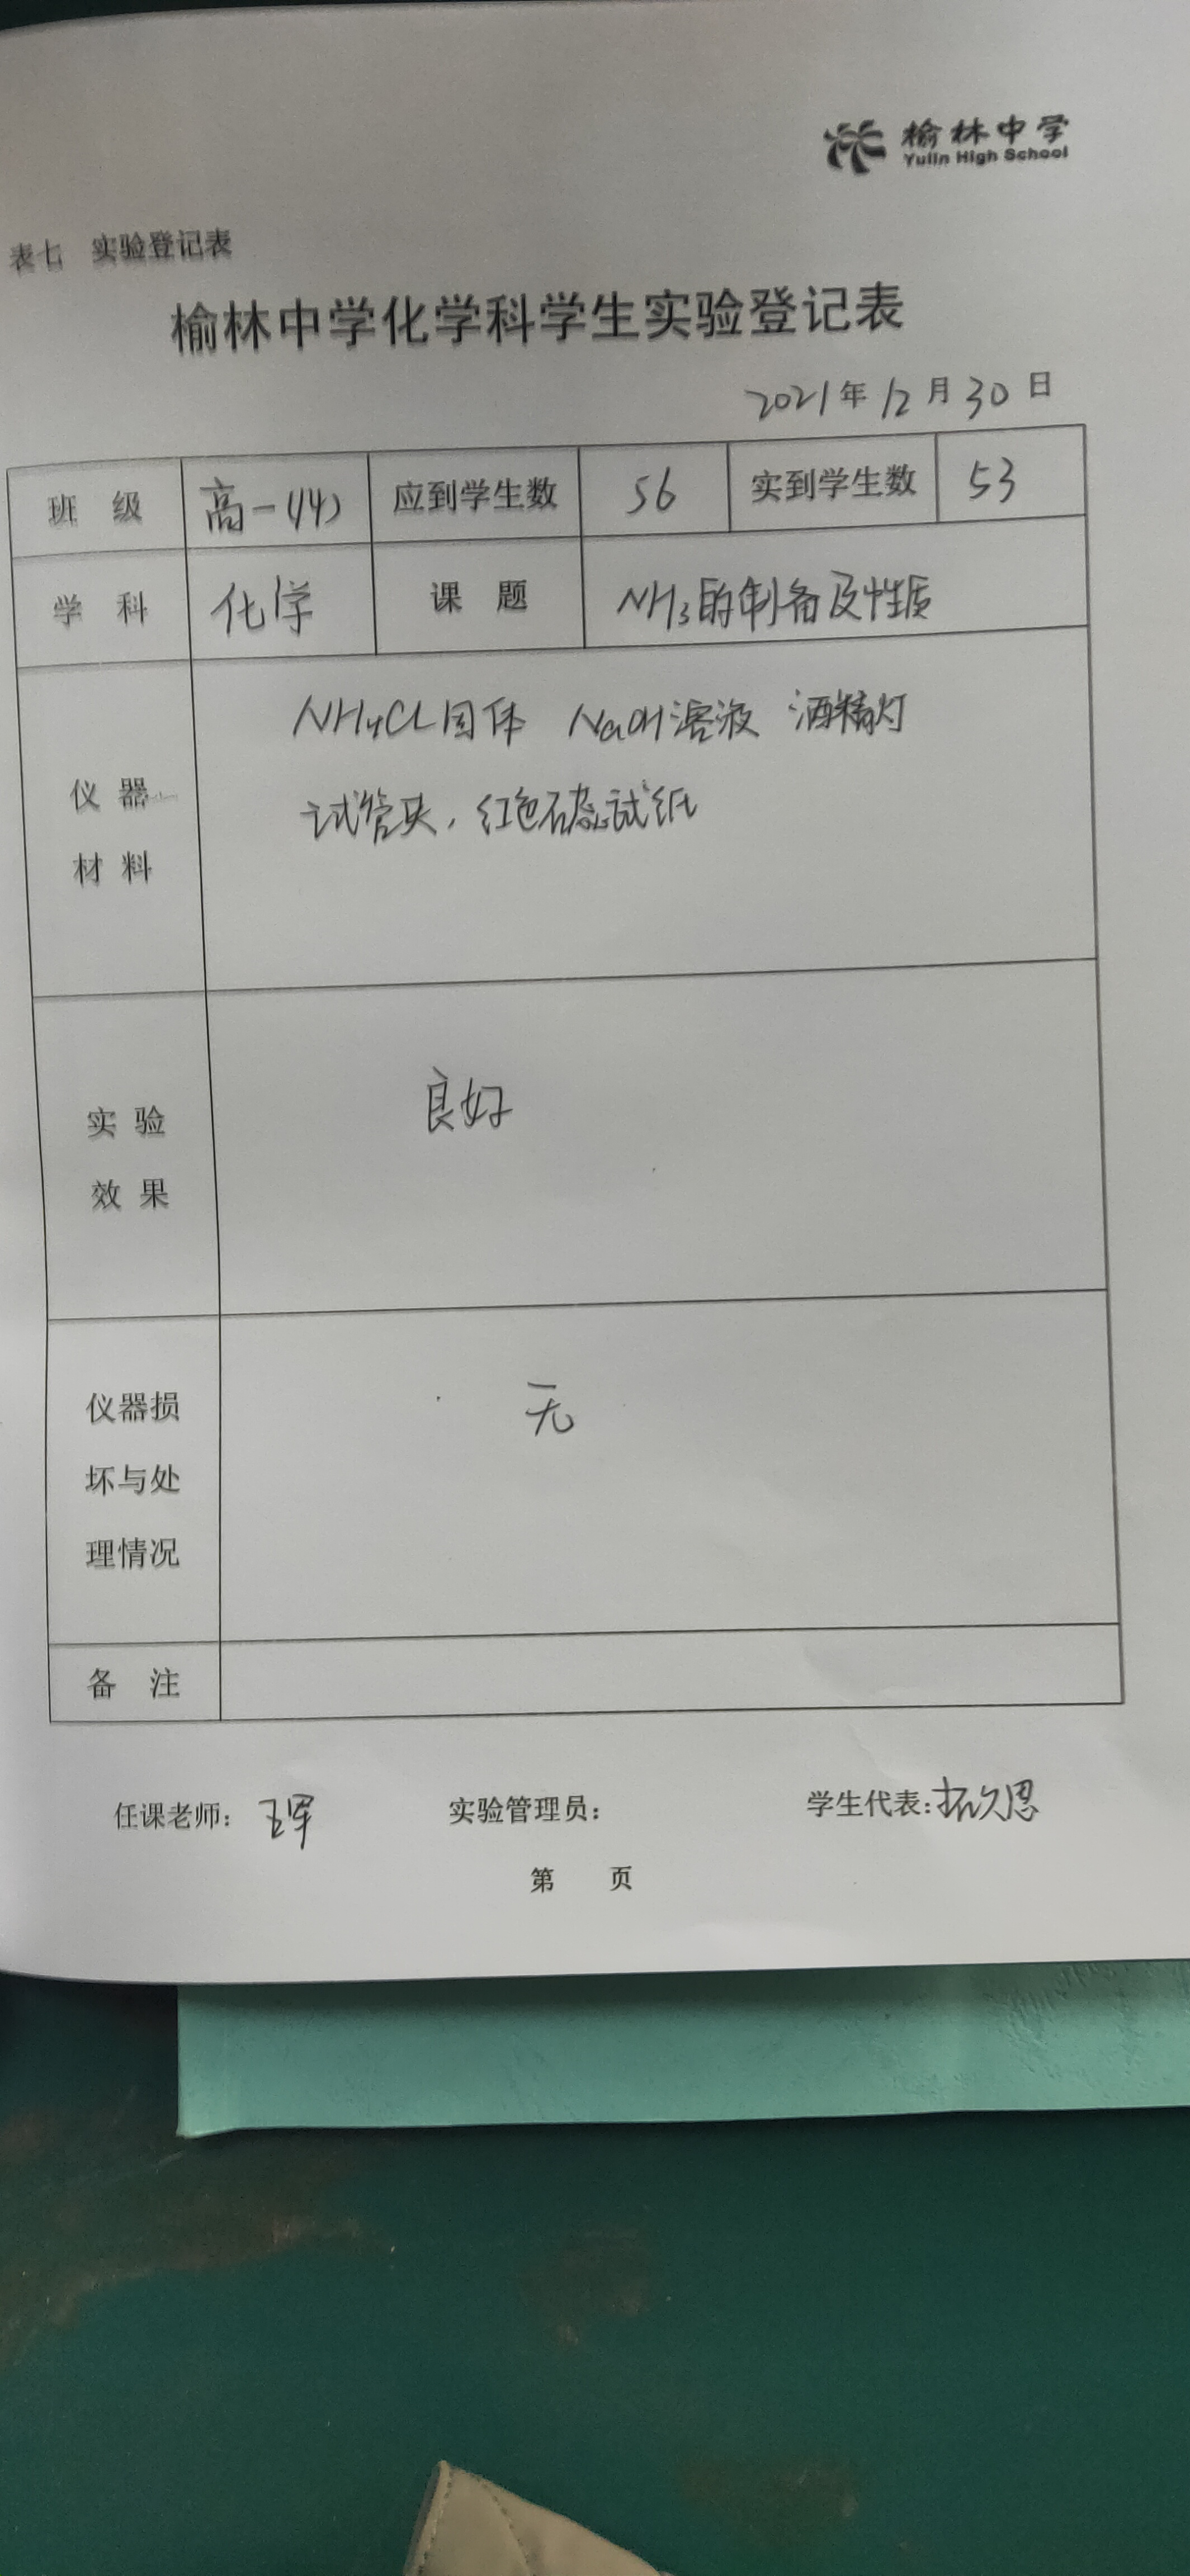 榆林中学
Yulin High School
表七 实验登记表
榆林中学化学科学生实验登记表
2021年12月30日
班 级 高一(4) 应到学生数 56 实到学生数 53
学 科 化学 课 题 NH3的制备及性质
NH4CL固体 NaOH溶液 酒精灯
仪 器
试管夹,红色石蕊试纸
材 料
良好
实 验
效 果
仪器损 无
坏与处
理情况
备 注
任课老师: 王军 实验管理员: 学生代表:拓久恩
第 页